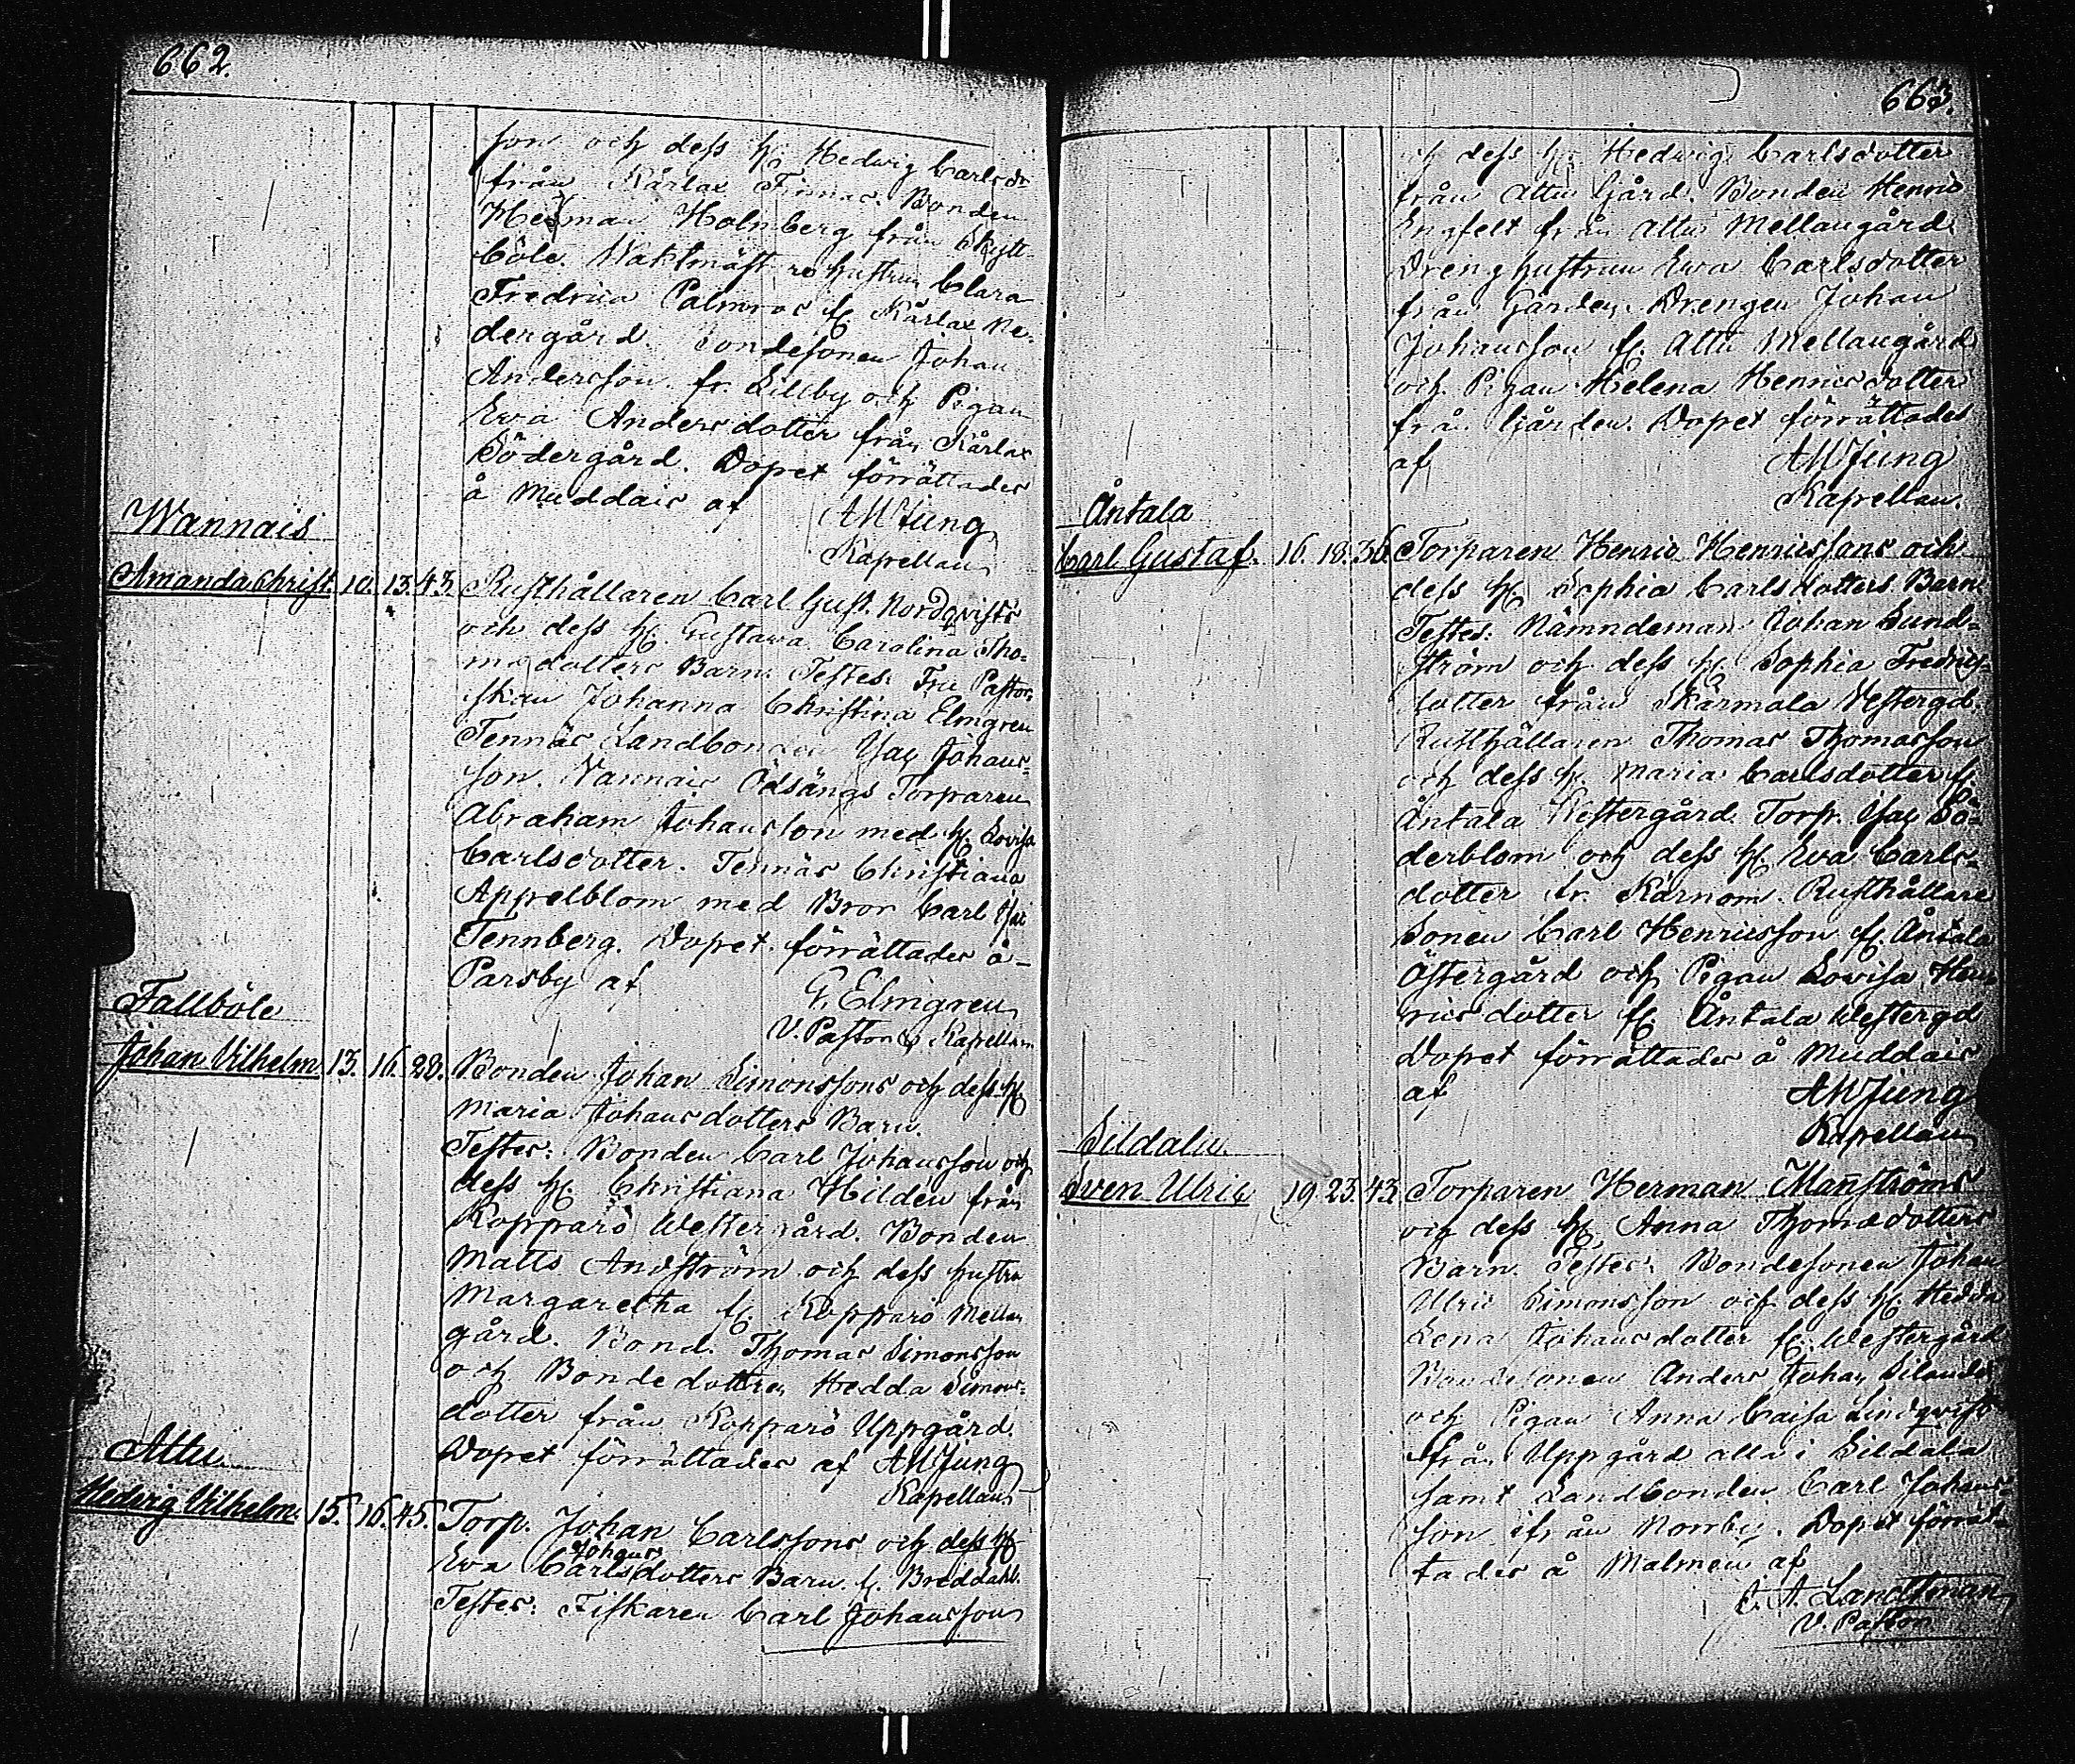 662.
son och dess h. Hedwig Carlsdr
från Kårlax Finnas. Bonden
Herman Holmberg från Skytt-
böle. Waktmäst re hustrun Clara
Fredrica Palmros f. Kårlax Ne-
dergård. Bondesonen Johan
Andersson fr. Lillby och Pigan
Ewa Andersdotter från Kårlax
Södergård. Dopet förrättades
å Muddais af AWJung
Kapellan
Wannais
Amanda Christ. 10. 13. 43. Rusthållaren Carl Gust. Nordqvists
och dess h. Gustava Carolina Tho-
madotters Barn. Testes: Fru Pastor-
skan Johanna Christina Elmgren
Tennäs Landbonden Isac Johans-
son. Vannais Ödsängs Torparen
Abraham Johansson med h. Lovisa
Carlsdotter. Tennäs Christiana
Appelblom med Bror Carl
Tennberg. Dopet förrättades å
Parsby af G. Elmgren
V. Pastor & Kapellan
Fallböle
Johan Vilhelm 13. 16. 28. Bonden Johan Simonssons och dess h.
Maria Johansdotters Barn.
Testes: Bonden Carl Johansson och
dess h. Christiana Hilden från
Kopparö Westergård. Bonden
Matts Andström och dess hustru
Margaretha f. Kopparö Mellan
gård. Bond. Thomas Simonsson
och Bondedottren Hedda Simons-
dotter från Kopparö Uppgård.
Dopet förrättades af AWJung
Kapellan
Attu
Hedvig Vilhelm. 15. 16. 45. Torp. Johan Carlssons och dess h.
Johans
Eva Carlsdotters Barn. f. Breddahl.
Testes: Fiskaren Carl Johansson
663.
och dess h. Hedwig Carlsdotter
från Attu Gård. Bonden Henric
Engfelt från Attu Mellangård
Dreng hustrun Ewa Carlsdotter
från Gården. Drengen Johan
Johansson f. Attu Mellangård
och Pigan Helena Henricsdotter
från Gården. Dopet förrättades
af AWJung
Kapellan.
Åntala
Carl Gustaf. 16. 18. 36. Torparen Henric Henricssons och
dess h. Sophia Carlsdotters Barn
Testes: Nämndeman Johan Sund-
ström och dess h. Sophia Fredrics-
dotter från Skärmala Vestergd.
Rusthållaren Thomas Thomasson
och dess h. Maria Carlsdotter f.
Åntala Westergård. Torp. Isac Sö-
derblom och dess h. Eva Carls-
dotter fr. Kärnom. Rusthållare
Sonen Carl Henricsson f. Åntala
Östergård och Pigan Lovisa Hen-
ricsdotter f. Åntala Westergd
Dopet förrättades å Muddais
af AWJung
Kapellan
Sildala
Sven Ulric 19. 23. 43. Torparen Herman Manströms
och dess h. Anna Thomædotters
Barn. Testes: Bondesonen Johan
Ulric Simonsson och dess h. Hedda
Lena Johansdotter f. Westergård
Bondesonen Anders Johan
och Pigan Anna Caisa Lindqvist
från Uppgård alla i Sildala
samt Landbonden Carl Johans-
son ifrån Norrby. Dopet förrät-
tades å Malmen af
Landtman
V. Pastor